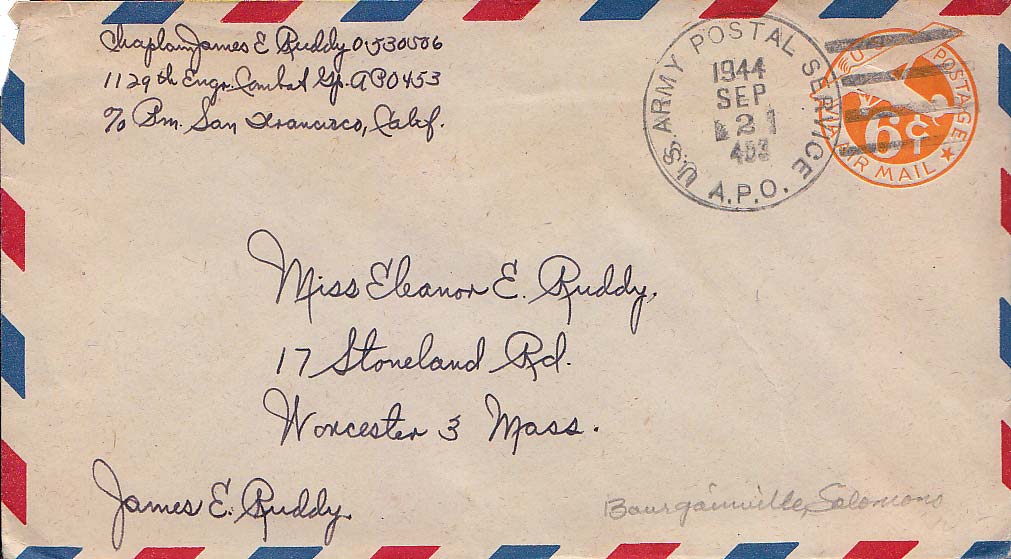 Chaplain James E Ruddy O-530506
1129th Engr. Combat Gp. APO 453
% Pm. San Francisco, Calif.
U.S. ARMY POSTAL SERVICE
1944
SEP
21
453
A.P.O.
U.S. POSTAGE
6¢
AIR MAIL
Miss Eleanor E. Ruddy.
17 Stoneland Rd.
Worcester 3 Mass.
James E. Ruddy
Bourgainville, Solomons